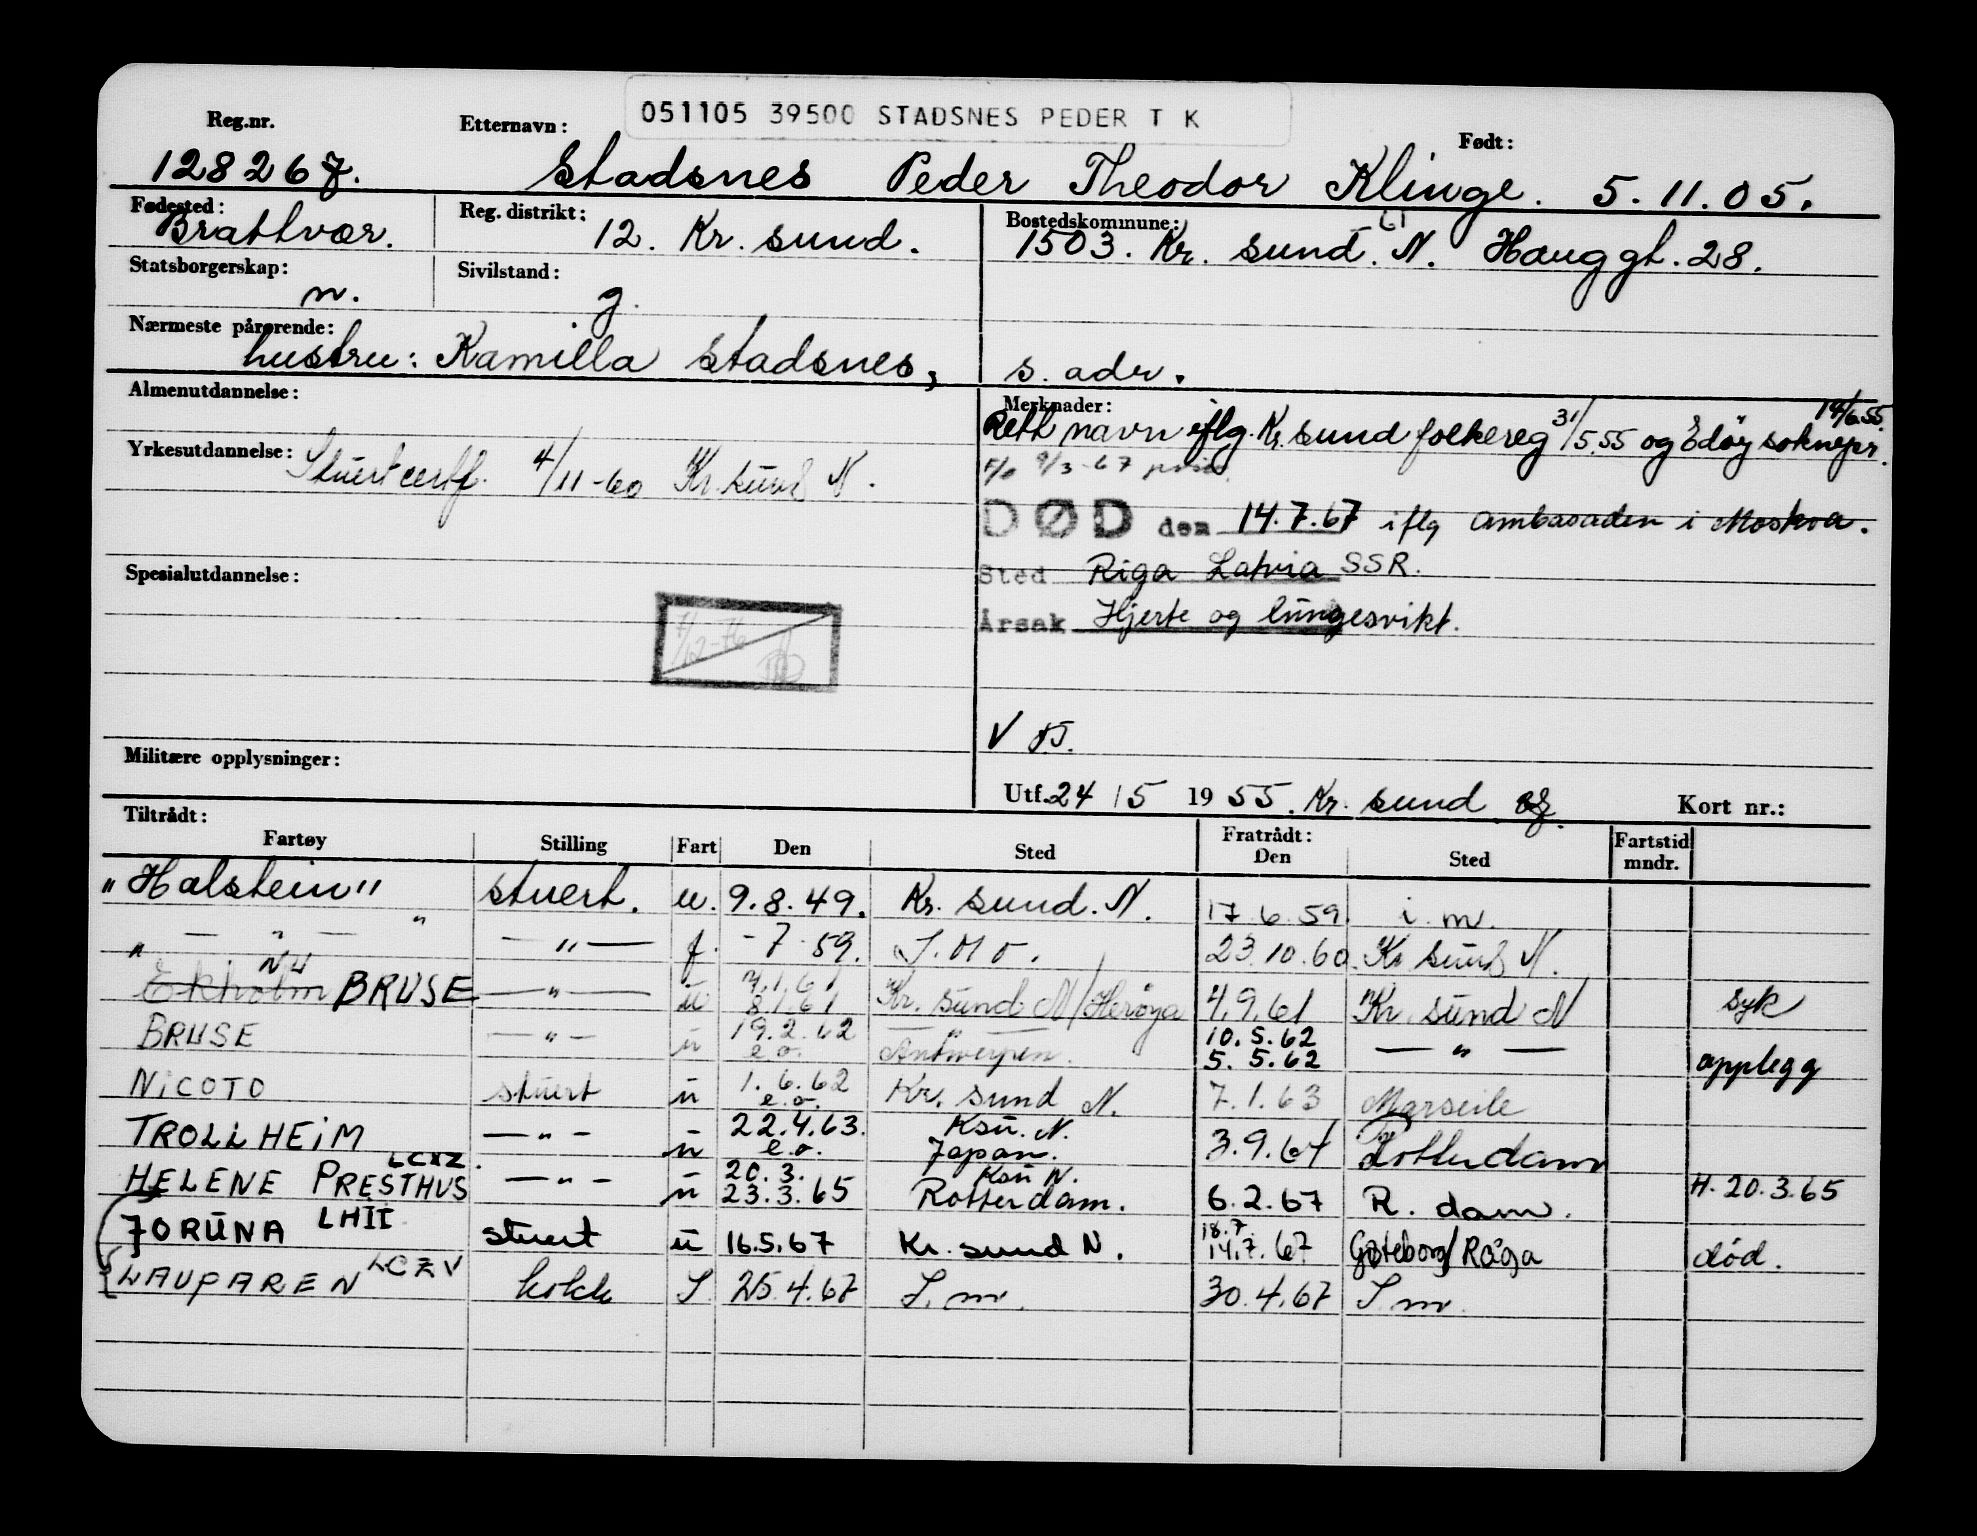 051105 39500 STADSNES PEDER T K
Reg.nr. Etternavn: Født:
128267. Stadsnes Peder Theodor Klinge. 5.11.05.
Fødested: Reg. distrikt: Bostedskommune:
Brattvær. 12. Kr. sund. 1503. Kr. sund. N. Hauggt. 28.
Statsborgerskap: Sivilstand:
n. g.
Nærmeste pårørende:
hustru: Kamilla Stadsnes, s. adr.
Almenutdannelse: Merknader: 14/6.55.
Rett navn iflg. Kr. sund folkereg 31/5.55 og Edøy soknepr.
Yrkesutdannelse: Stuertcertf. 4/11-60 Kr. sund N.
F/o 9/3-67
DØD den 14.7.67 iflg ambasaden i Moskva.
Sted Riga Latvia SSR.
Spesialutdannelse:
Årsak Hjerte og lungesvikt.
7/12-76
V
Militære opplysninger:
Utf. 24/5 1955. Kr. sund Kort nr.:
Tiltrådt: Fratrådt: Fartstid
Fartøy Stilling Fart Den Sted Den Sted mndr.
"Halstein" stuert. u. 9.8.49. Kr. sund. N. 17.6.59. i. m.
" — " — " — " — f. -7-59. S. M o. 23.10.60. Kr sund N.
NU 7.1.61
Ekholm BRUSE — " — u 8.1.61 Kr. sund N/Herøya 4.9.61 Kr. sund N syk
BRUSE — " — u 19.2.62 — " — 10.5.62
e.o. Antwerpen. 5.5.62 — " — opplegg
NICOTO stuert u 1.6.62 e.o. Kr. sund N. 7.1.63 Marseile
TROLLHEIM — " — u 22.4.63. Ksu. N. 3.9.64 Rotterdam
e.o. Japan.
LCXZ. 20.3. Ksu N.
HELENE PRESTHUS — " — u 23.3.65 Rotterdam. 6.2.67 R. dam. H. 20.3.65
LHII 18.7.
JORUNA stuert u 16.5.67 Kr. sund N. 14.7.67 Gøteborg/Riga død.
LAUPAREN LCZV kokk S 25.4.67 S. m. 30.4.67 S. m.